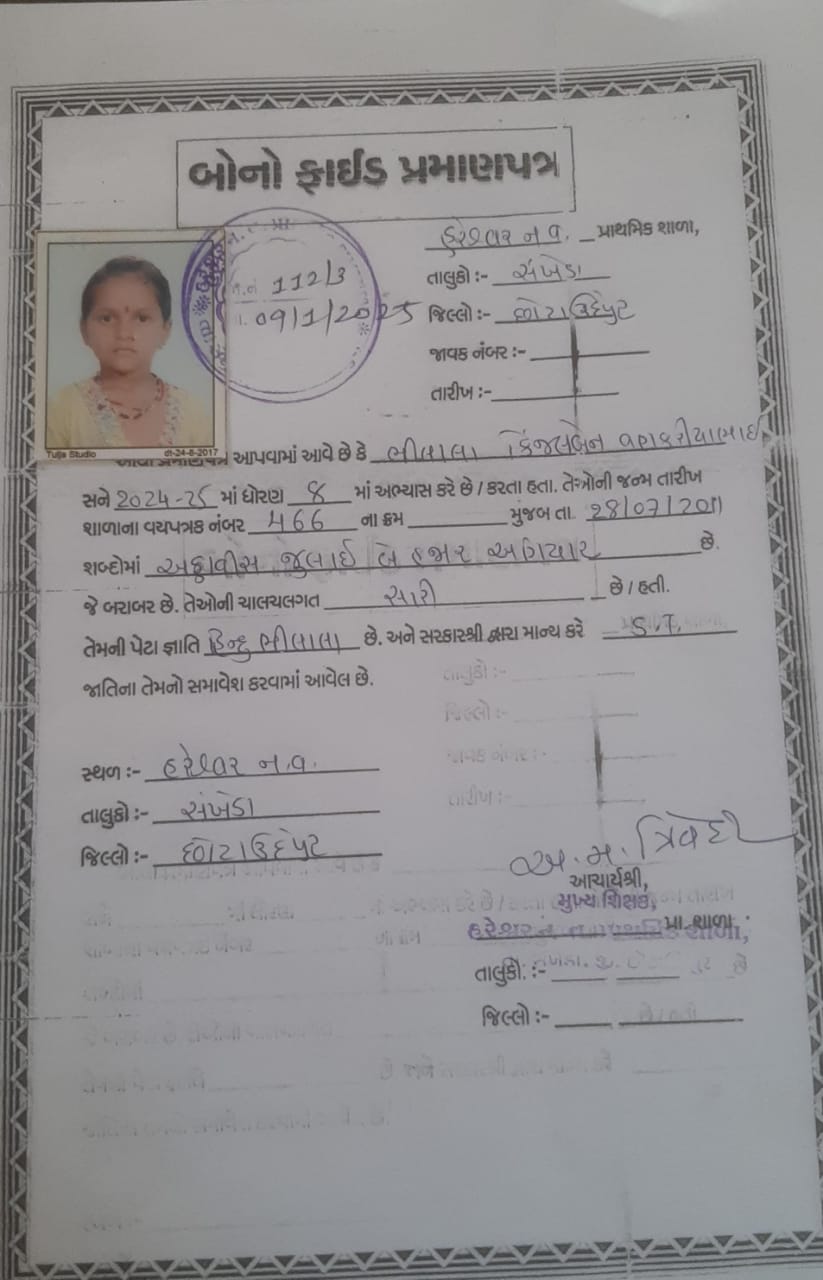 બોનો ફાઈડ પ્રમાણપત્ર
હરેશ્વર ન.વ. પ્રાથમિક શાળા,
તાલુકો :- સંખેડા
112/3
09/1/2025
જિલ્લો :- છોટાઉદેપુર
જાવક નંબર :-
તારીખ :-
Tulja Studio dt-24-6-2017
આપવામાં આવે છે કે ભીલાલા કિંજલબેન
સને 2024-25 માં ધોરણ 8 માં અભ્યાસ કરે છે / કરતા હતા. તેઓની જન્મ તારીખ
શાળાના વયપત્રક નંબર 466 ના ક્રમ મુંજબ તા. 28/07/2011
શબ્દોમાં અઠ્ઠાવીસ જુલાઈ બે હજાર અગિયાર છે.
જે બરાબર છે. તેઓની ચાલચલગત સારી છે / હતી.
તેમની પેટા જ્ઞાતિ હિન્દુ ભીલાલા છે. અને સરકારશ્રી દ્વારા માન્ય કરે S.T.
જાતિના તેમનો સમાવેશ કરવામાં આવેલ છે.
સ્થળ :- હરેશ્વર ન.વ.
તાલુકો :- સંખેડા
જિલ્લો :- છોટાઉદેપુર
અ.મ. ત્રિવેદી
આચાર્યશ્રી,
મુખ્ય શિક્ષક,
પ્રા. શાળા,
તાલુકો :-
જિલ્લો :-